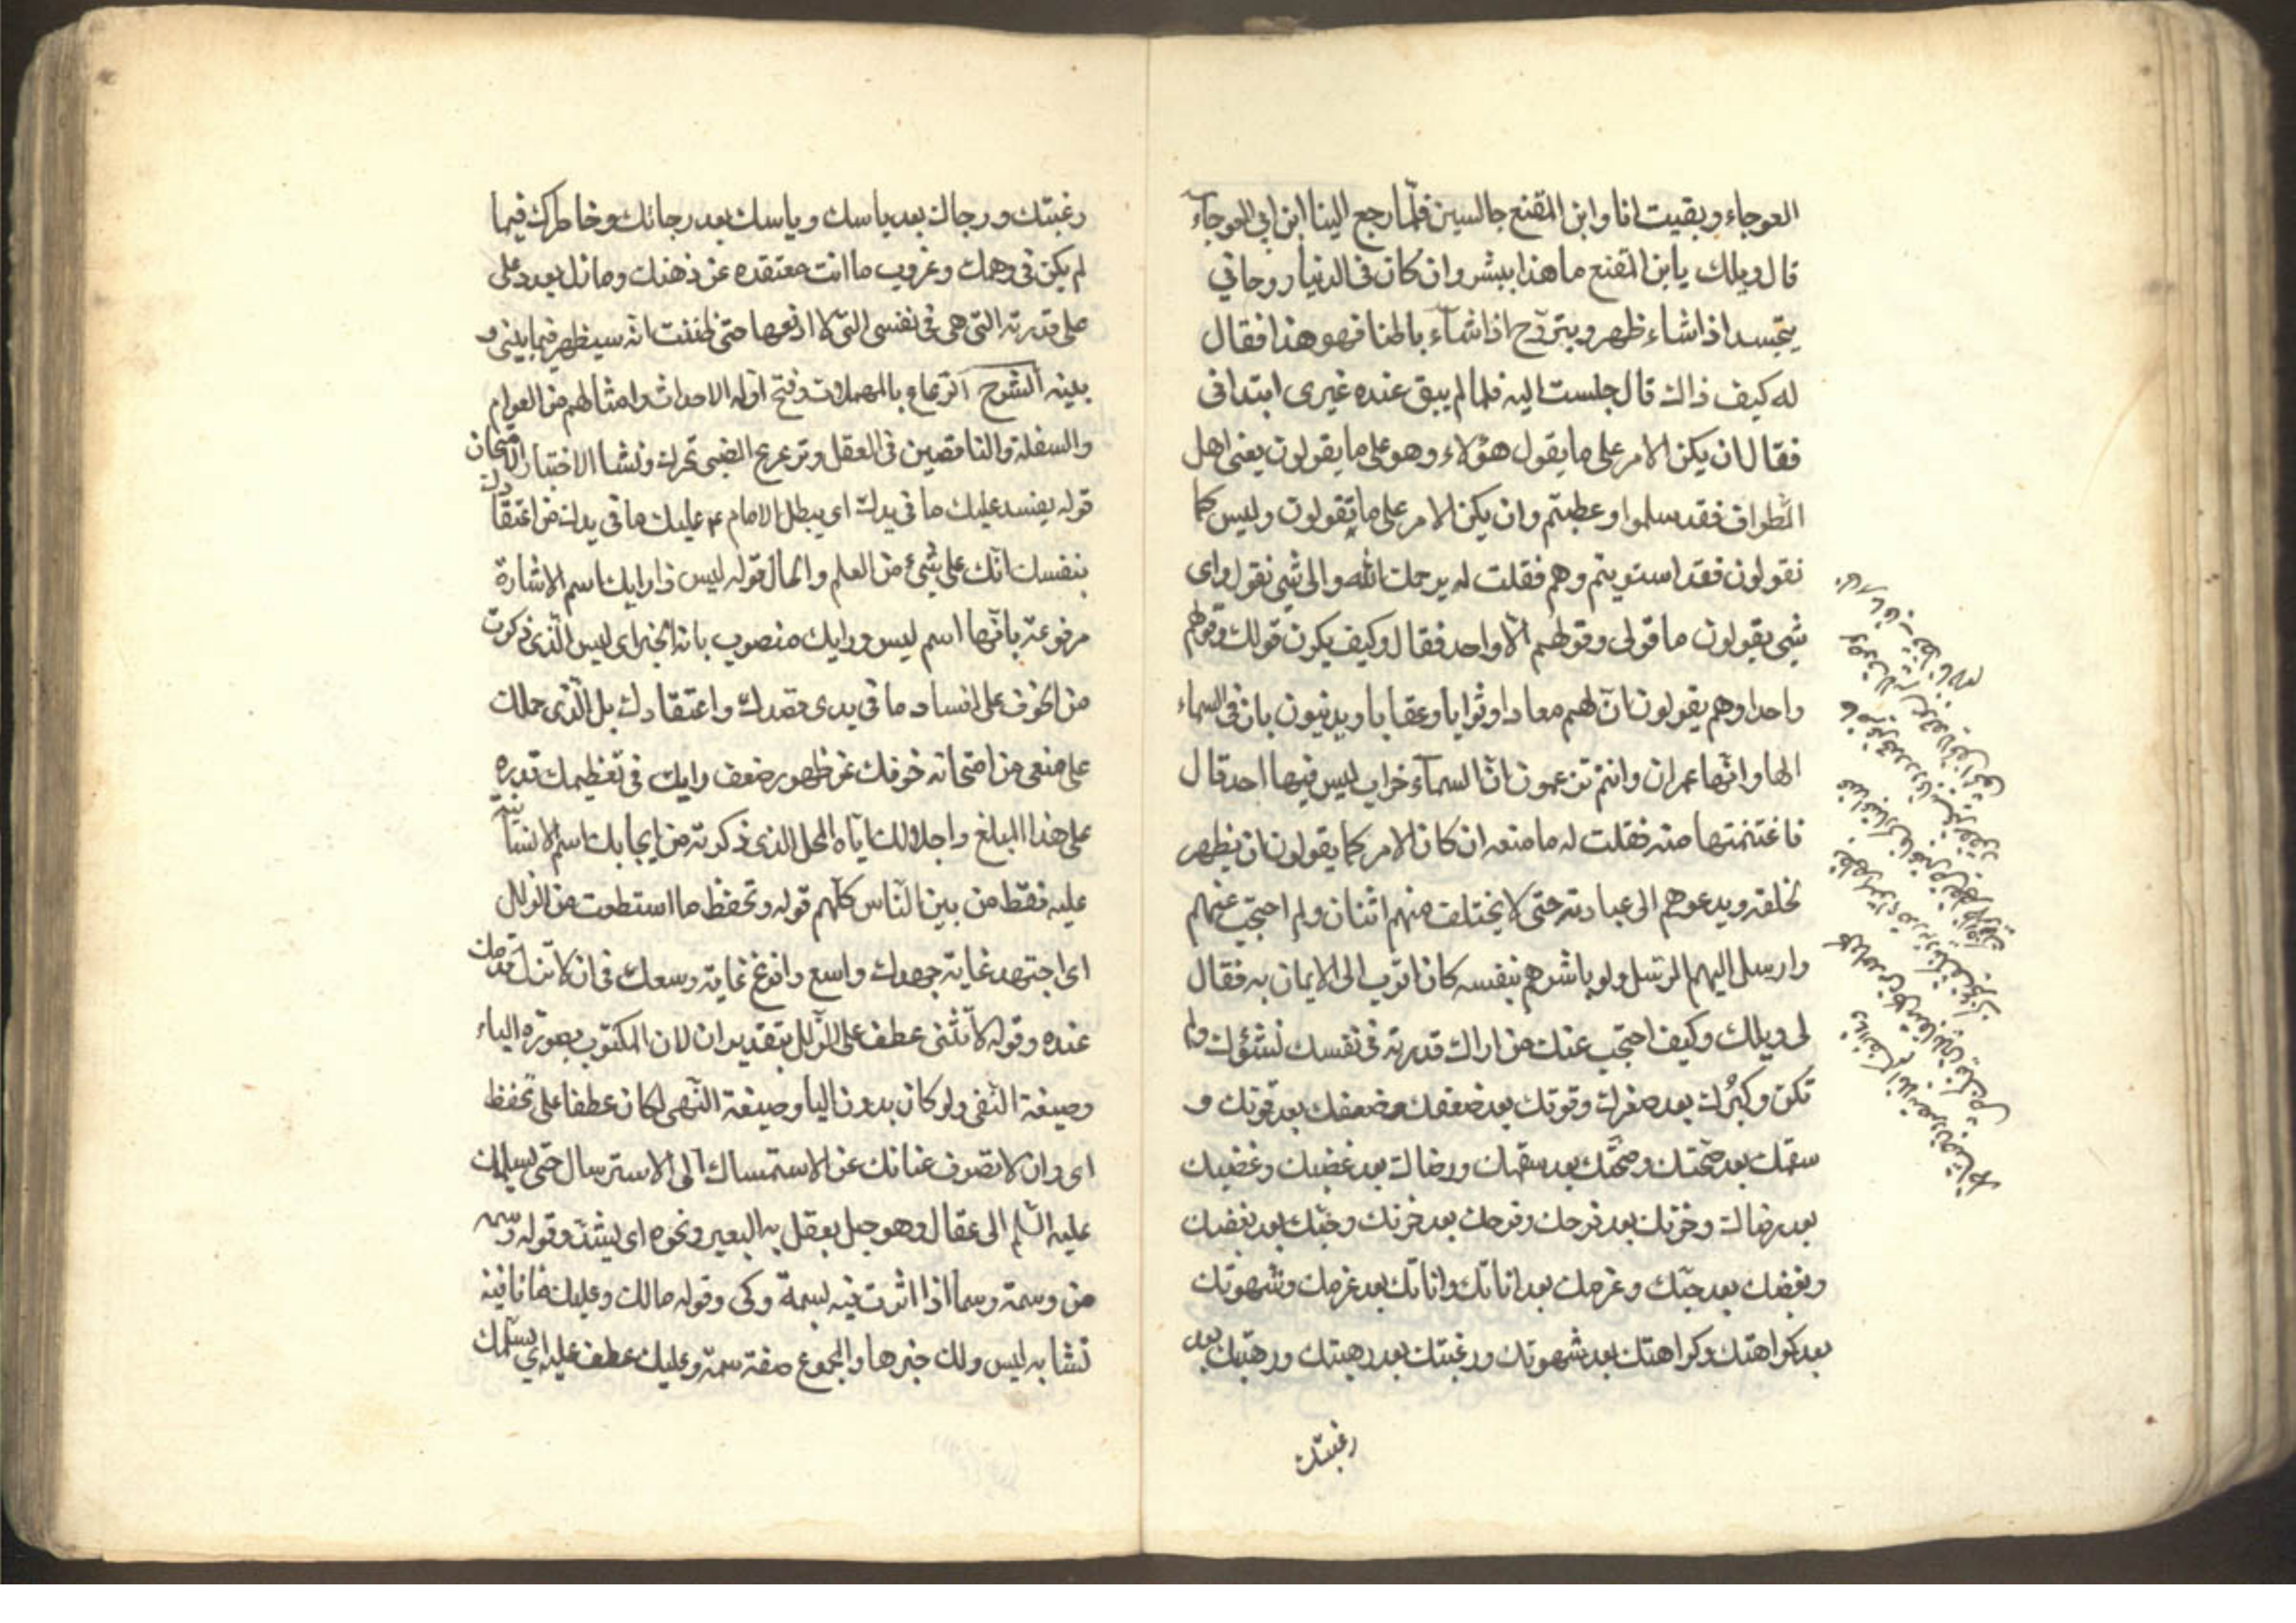 العوجاء وبقيت انا وابن المقفع جالسين فلمّا رجع الينا ابن ابي العوجاء
قال ويلك يابن المقفع ما هذا ببشر وان كان في الدنيا روحاني
يتجسد اذا شاء ظهر ويتروّح اذا شاء باطنا فهو هذا فقال
له كيف ذاك قال جلست اليه فلما لم يبق عنده غيرى ابتدانى
فقال ان يكن الامر على ما يقول هؤلاء وهو على ما يقولون يعنى اهل
الطواف فقد سلموا وعطبتم وان يكن الامر على ما تقولون وليس كما
تقولون فقد استويتم وهم فقلت له يرحمك الله والى شئ نقول واى
شئ يقولون ما قولى وقولهم الّا واحد فقال وكيف يكون قولك وقولهم
واحدا وهم يقولون انّ لهم معادا وثوابا وعقابا ويدينون بان فى السماء
الها وانّها عمران وانتم تزعمون انّ السمآء خراب ليس فيها احد قال
فاغتنمتها منه فقلت له ما منعه ان كان الامر كما يقولون ان يظهر
لخلقه ويدعوهم الى عبادته حتى لا يختلف منهم اثنان ولم احتجب عنهم
وارسل اليهم الرّسل ولو باشرهم بنفسه كان اقرب الى الايمان به فقال
لى ويلك وكيف احتجب عنك من اراك قدرته فى نفسك نشوءك ولم
تكن وكبرك بعد صغرك وقوتك بعد ضعفك وضعفك بعد قوتك و
سقمك بعد صحّتك وصحّتك بعد سقمك ورضاك بعد غضبك وغضبك
بعد رضاك وحزنك بعد فرحك وفرحك بعد حزنك وحبّك بعد بغضك
وبغضك بعد حبّك وعزمك بعد اناتك واناتك بعد عزمك وشهوتك
بعد كراهتك وكراهتك بعد شهوتك ورغبتك بعد رهبتك ورهبتك بعد
رغبتك
رغبتك ورجاك بعد ياسك وياسك بعد رجائك وخاطرك فيما
لم يكن فى وهمك وعزوب ما انت معتقده عن ذهنك وما زل يعدد على
على قدرته التى هى فى نفسى التى لا ادفعها حتى ظننت انه سيظهر فيما بينى و
بينه الشرح الرعاع بالمهملات وفتح اوله الاحداث وامثالهم من العوام
والسفلة والناقصين فى العقل وترعرع الصبى تحرك ونشا الاختبار الامتحان
قوله يفسد عليك ما فى يدك اى يبطل الامام ع عليك ما فى يدك من اعتقادك
بنفسك انّك على شئ من العلم والمال قوله ليس ذا رايك اسم الاشارة
مرفوعة بانّها اسم ليس ورايك منصوب بانه الخبر اى ليس الّذى ذكرت
من الخوف على افساد ما فى يدى مقصدك واعتقادك بل الّذى حملك
على منعى من امتحانه خوفك عن ظهور ضعف رايك فى تعظيمك قدره
على هذا المبلغ واجلالك ايّاه المحل الذى ذكرته من ايجابك اسم الانسانية
عليه فقط من بين النّاس كلّهم قوله وتحفظ ما استطعت من الزلل
اى اجتهد غاية جهدك واسع وافرغ غاية وسعك فى ان لا تزل قدمك
عنده وقوله لا تثنى عطف على الزّلل بتقدير ان لان المكتوب بصورة الياء
وصيغة النّفى ولو كان بدون اليا وصيغة النّهى لكان عطفا على تحفظ
اى وان لا تصرف عنانك عن الاستمساك الى الاسترسال حتى يسلمك
عليه السّلم الى عقال وهو حبل يعقل به البعير ونحوه اى يشدّ وقوله وسمه
من وسمة وسما اذا اثرت فيه بسمة وكى وقوله مالك وعليك فما نافية
تشابه ليس ولك خبرها والمجموع صفة سمة وعليك عطف عليه اى يسلمك